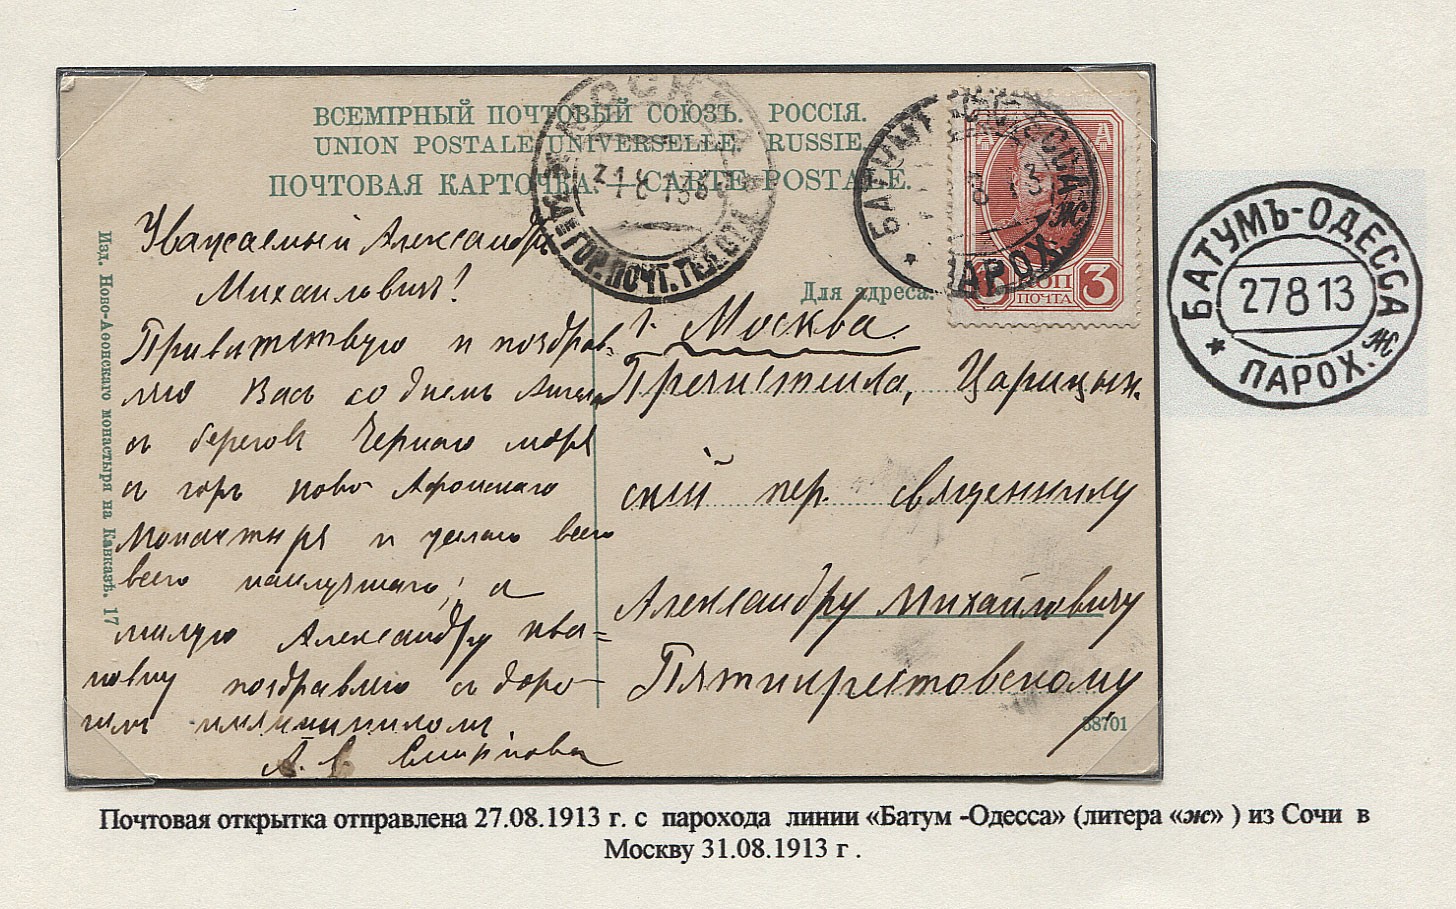 ВСЕМІРНЫЙ ПОЧТОВЫЙ СОЮЗЪ. РОССІЯ.
UNION POSTALE UNIVERSELLE. RUSSIE.
ПОЧТОВАЯ КАРТОЧКА. — CARTE POSTALE.
Изд. Ново-Аѳонскаго монастыря на Кавказѣ. 17
Уважаемый Александръ
Михаиловичъ!
Привитствую и поздрав-
ляю Васъ со днемъ Ангела
съ берегов Чернаго моря
съ горъ ново Афонскаго
Монастыря и желаю всего
всего наилучшаго, а
милую Александру ива=
новну поздравляю съ доро-
гим имянинником
А. С. Смирнова
Для адреса:
г. Москва.
Пречистенка, Царицын.
скій пер. священнику
Александру Михайловичу
Пятикрестовскому
38701
МОСКВА
31 8 13
ГОР. ПОЧТ. ТЕЛ.
БАТУМЪ-ОДЕССА
8 13
Ж
ПАРОХ.
3
КОП
ПОЧТА
БАТУМЪ-ОДЕССА
27 8 13
Ж
* ПАРОХ.
Почтовая открытка отправлена 27.08.1913 г. с парохода линии «Батум -Одесса» (литера «ж» ) из Сочи в
Москву 31.08.1913 г .